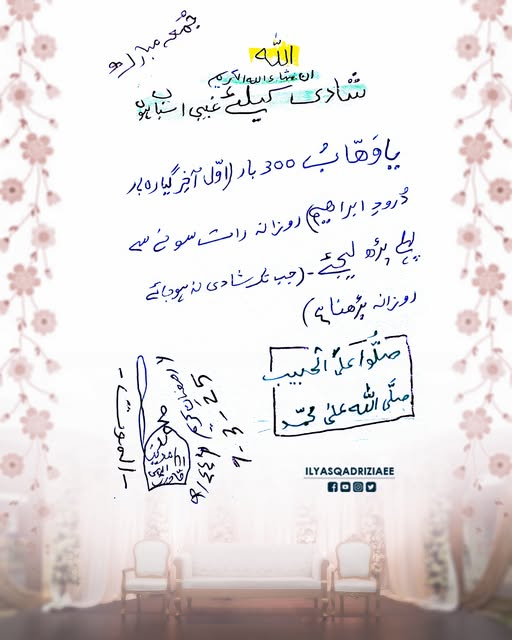 جُمعہ مبارک
اللہ
ان شاء اللہ الکریم
شادی کیلئے غیبی اسباب ہوں
یا وَھّابُ 300 بار (اوّل آخِر گیارہ بار
دُرودِ ابراھیم) روزانہ رات سونے سے
پہلے پڑھ لیجئے۔ (جب تک شادی نہ ہو جائے
روزانہ پڑھنا ہے)
صَلُّوا عَلَی الْحَبِیب
صلَّی اللہُ علیٰ محمّد
الموت
ILYASQADRIZIAEE